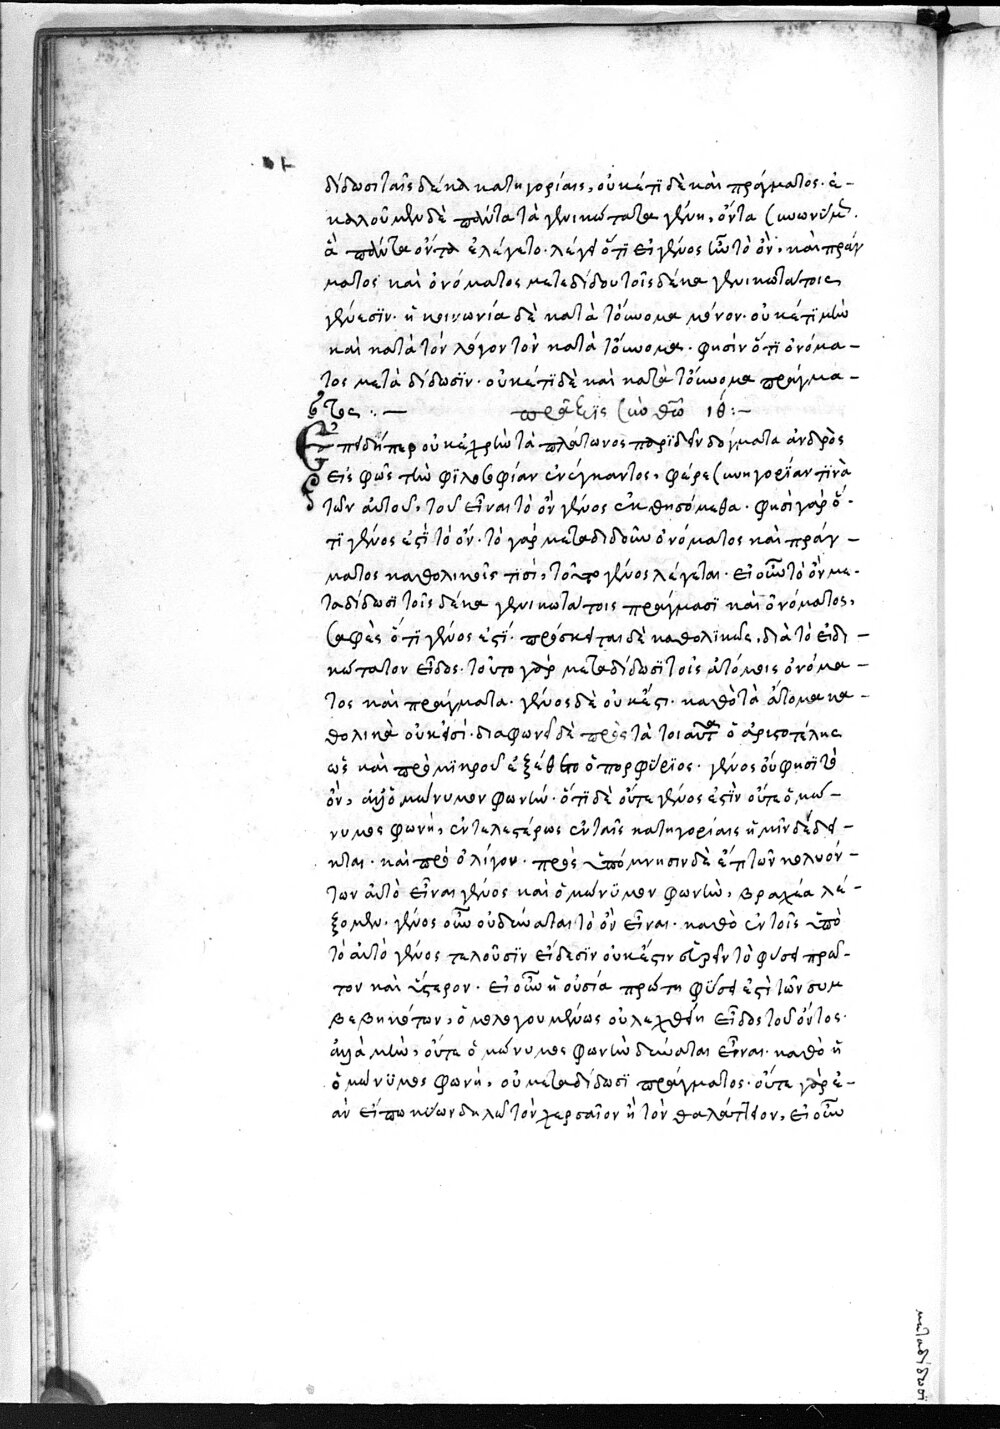 δίδωσι ταῖς δέκα κατηγορίαις, οὐκέτι δὲ καὶ πράγματος· ἐ-
καλοῦμεν δὲ πάντα τὰ γενικώτατα γένη, ὄντα συνωνύμως.
ἃ πάντα ὄντα ἐλέγετο· λέγει ὅτι εἰ γένος ἦν τὸ ὄν, καὶ πράγ
ματος καὶ ὀνόματος μετεδίδου τοῖς δέκα γενικωτάτοις
γένεσιν· ἡ κοινωνία δὲ κατὰ τοὔνομα μόνον· οὐκέτι μὴν
καὶ κατὰ τὸν λόγον τὸν κατὰ τοὔνομα· φησὶν ὅτι ὀνόμα-
τος μεταδίδωσιν· οὐκέτι δὲ καὶ κατὰ τοὔνομα πράγμα-
τος :— πρᾶξις σὺν θεῷ ιθ :—
Ἐπειδήπερ οὐκ ἐχρῆν τὰ πλάτωνος παριδεῖν δόγματα ἀνδρὸς
εἰς φῶς τὴν φιλοσοφίαν ἐνέγκαντος, φέρε συνηγορίαν τινὰ
τῶν αὐτοῦ, τοῦ εἶναι τὸ ὂν γένος ἐκθησόμεθα· φησὶ γὰρ ὅ-
τι γένος ἐστὶ τὸ ὄν· τὸ γὰρ μεταδιδοῦν ὀνόματος καὶ πράγ-
ματος καθολικοῖς τισὶ, τοῦτο γένος λέγεται· εἰ οὖν τὸ ὂν με-
ταδίδωσι τοῖς δέκα γενικωτάτοις πράγμασι καὶ ὀνόματος,
σαφὲς ὅτι γένος ἐστί· πρόσκειται δὲ καθολικῶς, διὰ τὸ εἰδι-
κώτατον εἶδος· τοῦτο γὰρ μεταδίδωσι τοῖς ἀτόμοις ὀνόμα-
τος καὶ πράγματα· γένος δὲ οὐκ ἔστι· καθὸ τὰ ἄτομα κα-
θολικὰ οὐκ εἰσί· διαφωνεῖ δὲ πρὸς τὰ τοιαῦτα ὁ ἀριστοτέλης
ὡς καὶ πρὸ μικροῦ ἐξέθετο ὁ πορφύριος· γένος οὔ φησι τὸ
ὄν, ἀλλ' ὁμώνυμον φωνήν· ὅτι δὲ οὔτε γένος ἐστὶν οὔτε ὁμώ-
νυμος φωνή, ἐντελεστέρως ἐν ταῖς κατηγορίαις ἡμῖν δέδει-
κται· καὶ πρὸ ὀλίγου· πρὸς ὑπόμνησιν δὲ ἐπὶ τῶν κωλυόν-
των αὐτὸ εἶναι γένος καὶ ὁμώνυμον φωνὴν, βραχέα λέ-
ξομεν· γένος οὖν οὐ δύναται τὸ ὂν εἶναι· καθὸ ἐν τοῖς ὑπὸ
τὸ αὐτὸ γένος τελοῦσιν εἴδεσιν οὐκ ἔστιν εὑρεῖν τὸ φύσει πρῶ-
τον καὶ ὕστερον· εἰ οὖν ἡ οὐσία πρώτη φύσει ἐστὶ τῶν συμ
βεβηκότων, ὁμολογουμένως οὐ λεχθείη εἶδος τοῦ ὄντος·
ἀλλὰ μὴν, οὔτε ὁμώνυμος φωνὴ δύναται εἶναι· καθὸ ἡ
ὁμώνυμος φωνὴ, οὐ μεταδίδωσι πράγματος· οὔτε γὰρ ἐ-
ὰν εἴπω κύων δηλῶ τὸν χερσαῖον ἢ τὸν θαλάττιον, εἰ οὖν
μεταδίδωσι